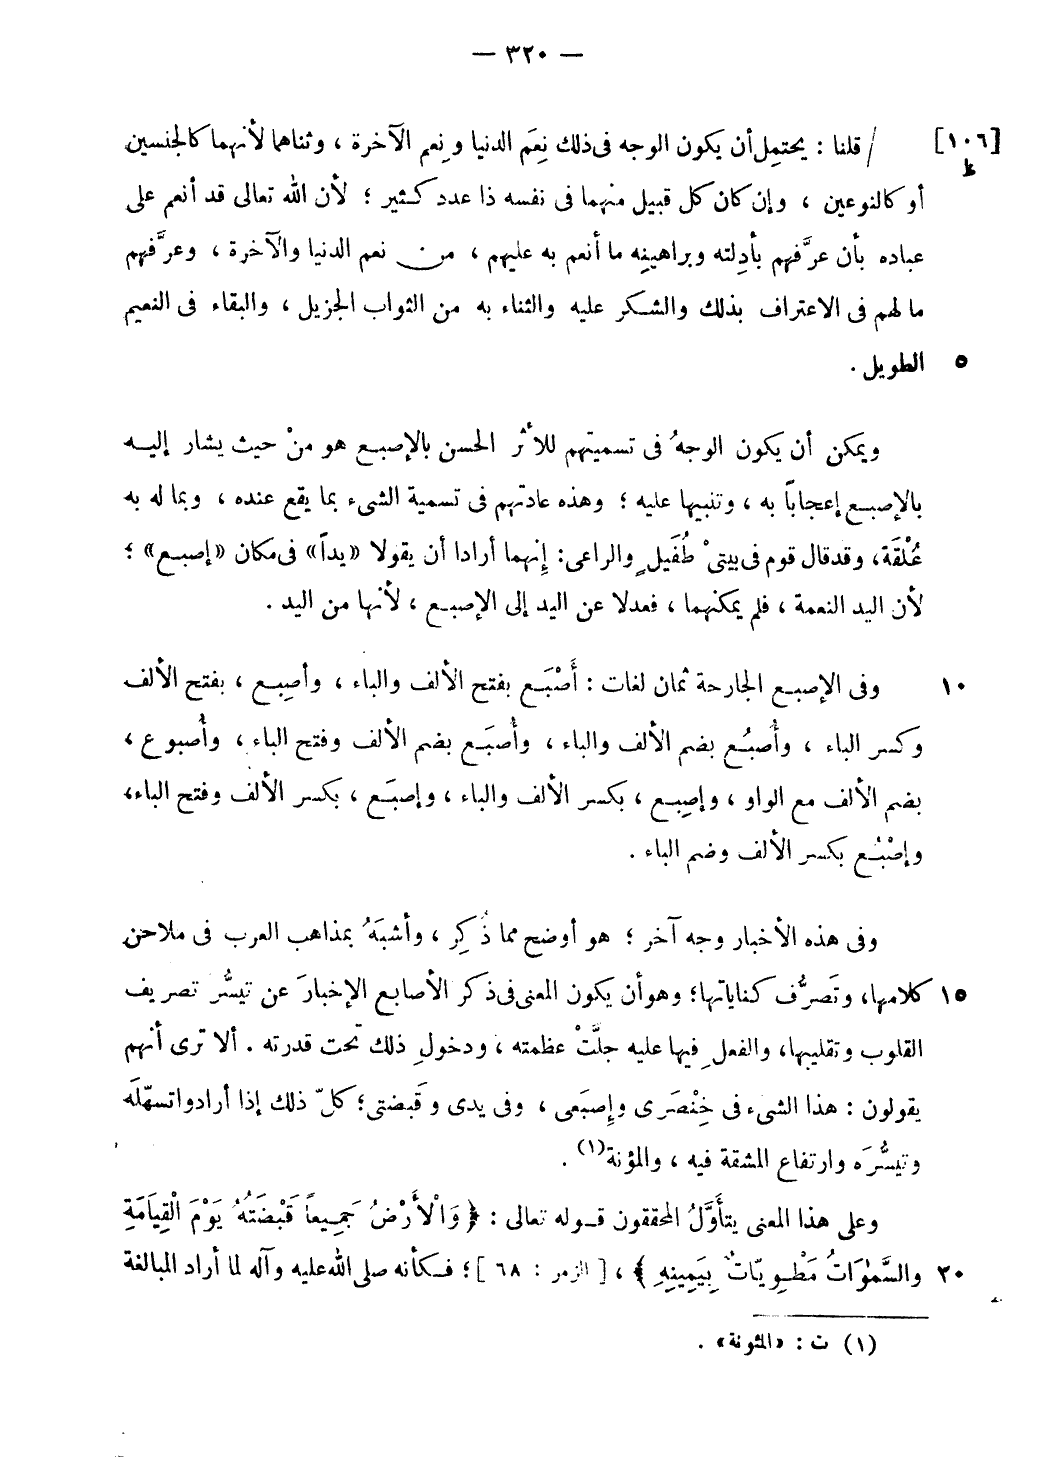 — ٣٢٠ —
[١٠٦] / قلنا : يحتمِل أن يكون الوجه فى ذلك نِعَم الدنيا ونِعم الآخرة ، وثناهما لأنهما كالجنسين
ظ
أو كالنوعين ، وإن كان كل قبيل منهما فى نفسه ذا عدد كثير ؛ لأن الله تعالى قد أنعم على
عباده بأن عرَّفهم بأدلته وبراهينه ما أنعم به عليهم ، من نعم الدنيا والآخرة ، وعرَّفهم
ما لهم فى الاعتراف بذلك والشكر عليه والثناء به من الثواب الجزيل ، والبقاء فى النعيم
٥ الطويل .
ويمكن أن يكون الوجهُ فى تسميتهم للأثر الحسن بالإصبع هو منْ حيث يشار إليه
بالإصبع إعجاباً به ، وتنبيها عليه ؛ وهذه عادتهم فى تسمية الشىء بما يقع عنده ، وبما له به
عُلْقَة، وقد قال قوم فى بيتىْ طُفَيلٍ والراعى: إنهما أرادا أن يقولا «يداً» فى مكان «إصبع» ؛
لأن اليد النعمة ، فلم يمكنهما ، فعدلا عن اليد إلى الإصبع ، لأنها من اليد .
١٠ وفى الإصبع الجارحة ثمان لغات : أَصْبَع بفتح الألف والباء ، وأصبِع ، بفتح الألف
وكسر الباء ، وأُصبُع بضم الألف والباء ، وأُصبَع بضم الألف وفتح الباء ، وأُصبوع ،
بضم الألف مع الواو ، وإصبِع ، بكسر الألف والباء ، وإصبَع ، بكسر الألف وفتح الباء،
وإصْبُع بكسر الألف وضم الباء .
وفى هذه الأخبار وجه آخر ؛ هو أوضح مما ذُكِر ، وأشبَهُ بمذاهب العرب فى ملاحن
١٥ كلامها، وتَصرُّف كناياتها؛ وهو أن يكون المعنى فى ذكر الأصابع الإخبارَ عن تيسُّر تصريف
القلوب وتقليبها، والفعلِ فيها عليه جلَّتْ عظمته ، ودخولِ ذلك تحت قدرته . ألا ترى أنهم
يقولون : هذا الشىء فى خِنْصَرى وإصبَعى ، وفى يدى وقَبضتى؛ كلّ ذلك إذا أرادوا تسهّلَه
وتيسُّرَه وارتفاع المشقة فيه ، والمؤنة(١) .
وعلى هذا المعنى يتأوَّلُ المحققون قوله تعالى : ﴿ وَالْأَرْضُ جَمِيعاً قَبْضَتُهُ يَوْمَ الْقِيَامَةِ
٢٠ والسَّمٰوَاتُ مَطْوِيّاتٌ بِيَمِينِهِ ﴾ ، [ الزمر : ٦٨ ]؛ فكأنه صلى الله عليه وآله لما أراد المبالغة
(١) ت : «المئونة» .